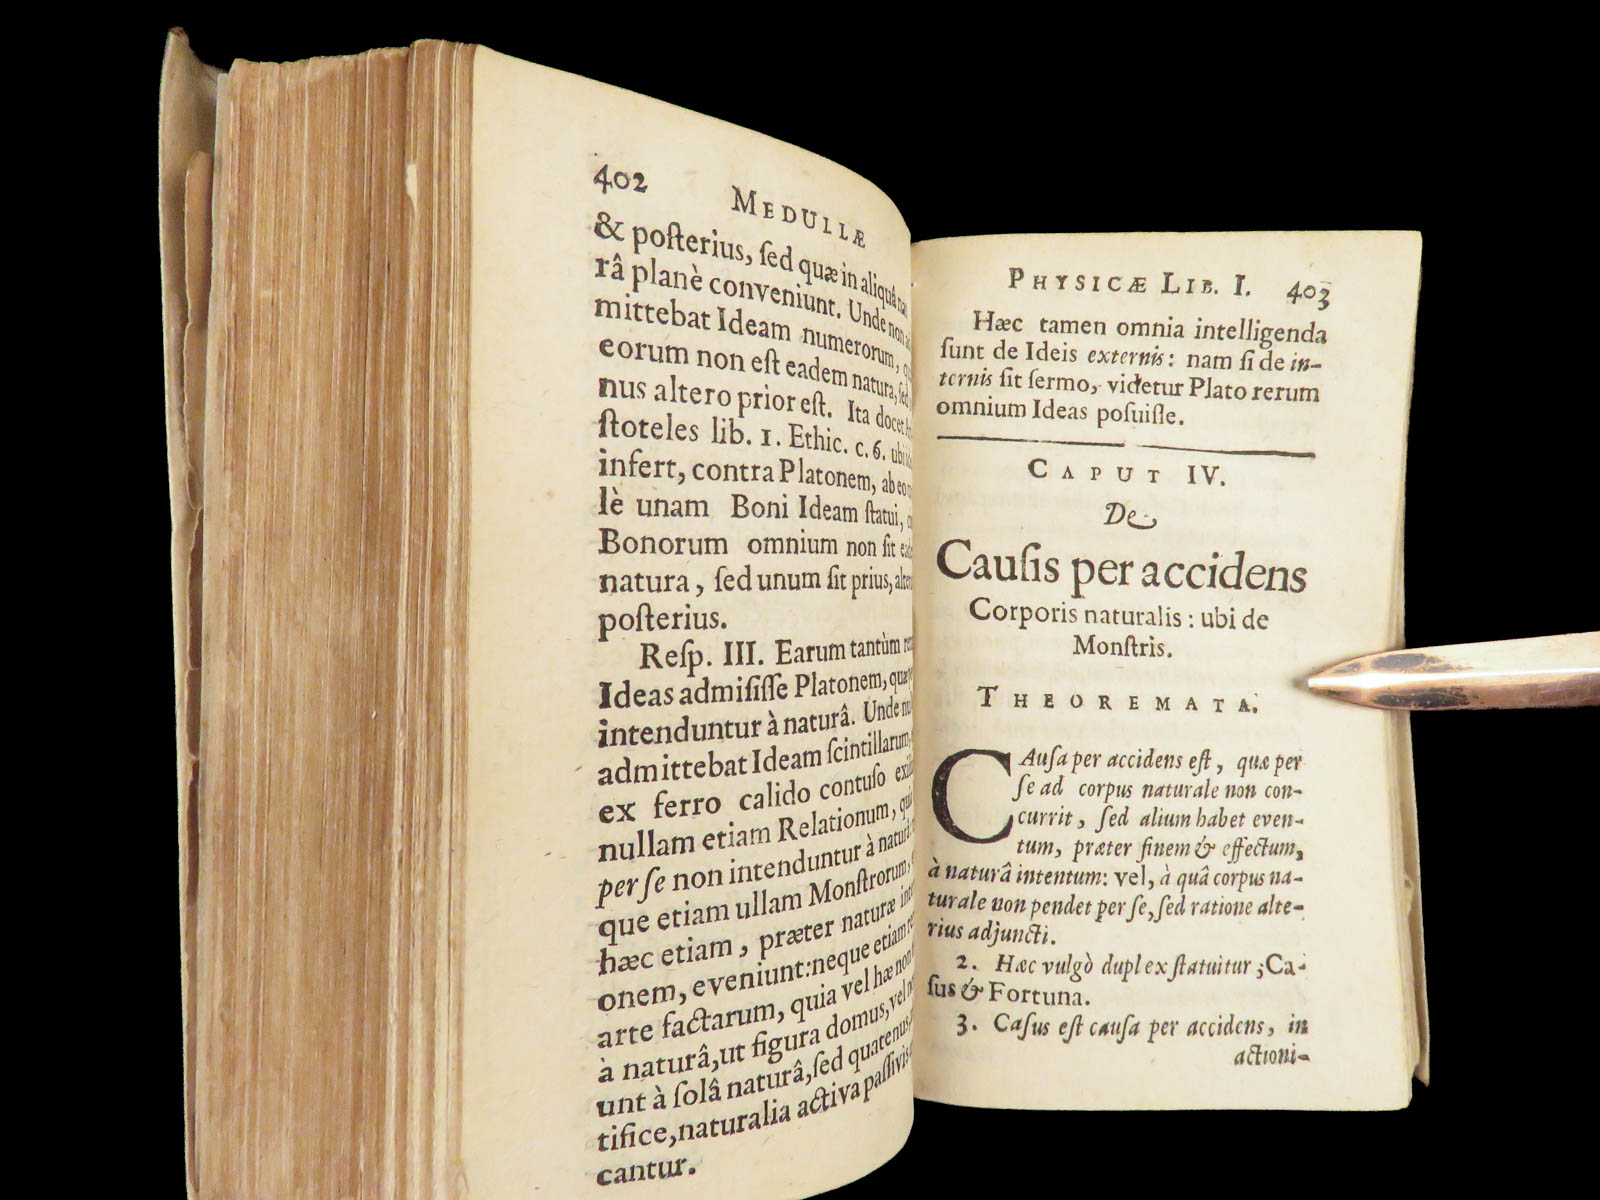 402 MEDULLÆ
& poſterius, ſed quæ in aliquâ
râ planè conveniunt. Unde non
mittebat Ideam numerorum,
eorum non eſt eadem natura, ſed
nus altero prior eſt. Ita docet
ſtoteles lib. 1. Ethic. c. 6. ubi
infert, contra Platonem, ab eo
lè unam Boni Ideam ſtatui,
Bonorum omnium non ſit
natura, ſed unum ſit prius,
poſterius.
Reſp. III. Earum tantùm
Ideas admiſiſſe Platonem,
intenduntur à naturâ. Unde
admittebat Ideam ſcintillarum,
ex ferro calido contuſo
nullam etiam Relationum,
per ſe non intenduntur à
que etiam ullam Monſtrorum,
hæc etiam, præter naturæ
onem, eveniunt: neque etiam
arte factarum, quia vel hæ non
à naturâ, ut figura domus, vel
unt à ſolâ naturâ, ſed quatenus
tifice, naturalia activa paſſivis
cantur.
PHYSICÆ LIB. I. 403
Hæc tamen omnia intelligenda
ſunt de Ideis externis: nam ſi de in-
ternis ſit ſermo, videtur Plato rerum
omnium Ideas poſuiſſe.
CAPUT IV.
De
Cauſis per accidens
Corporis naturalis: ubi de
Monſtris.
THEOREMATA.
CAuſa per accidens eſt, quæ per
ſe ad corpus naturale non con-
currit, ſed alium habet even-
tum, præter finem & effectum,
à naturâ intentum: vel, à quâ corpus na-
turale non pendet per ſe, ſed ratione alte-
rius adjuncti.
2. Hæc vulgò duplex ſtatuitur; Ca-
ſus & Fortuna.
3. Caſus eſt cauſa per accidens, in
actioni-